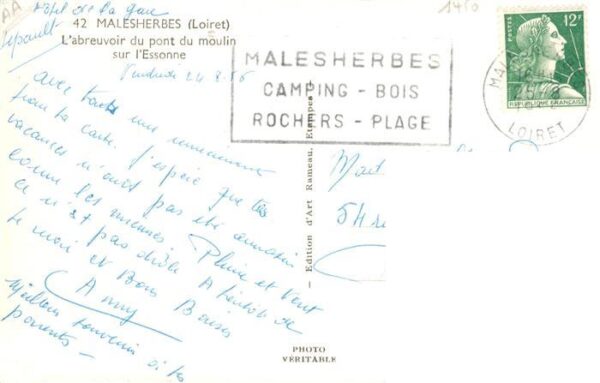 AA
Hôtel de la gare
42 MALESHERBES (Loiret)
L'abreuvoir du pont du moulin
sur l'Essonne
Vendredi 24.8.56
avec toute ma
pour ta carte. J'espère que tes
vacances n'ont pas été
comme les miennes. Pluie et Vent
ce n'est pas drôle. A bientôt de
te voir et Bons Baisers
Amy
Meilleurs souvenirs à tes
parents -
Edition d'Art Rameau, Etampes
PHOTO
VÉRITABLE
1450
MALESHERBES
CAMPING - BOIS
ROCHERS - PLAGE
POSTES
12F
REPUBLIQUE FRANÇAISE
LOIRET
54